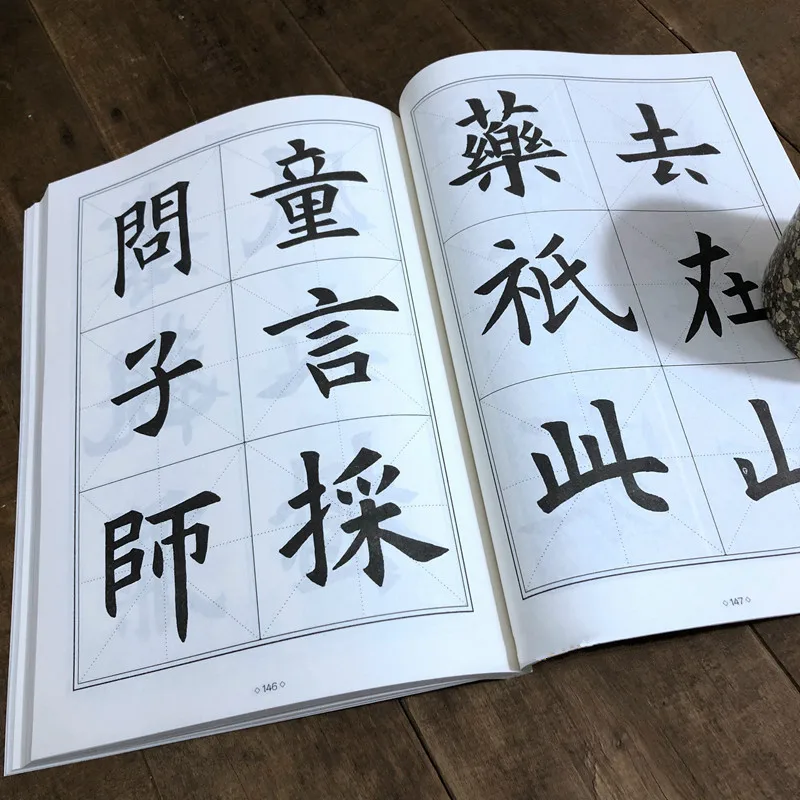 問童
子言
師採
◇146◇
藥去
祇在
此山
◇147◇